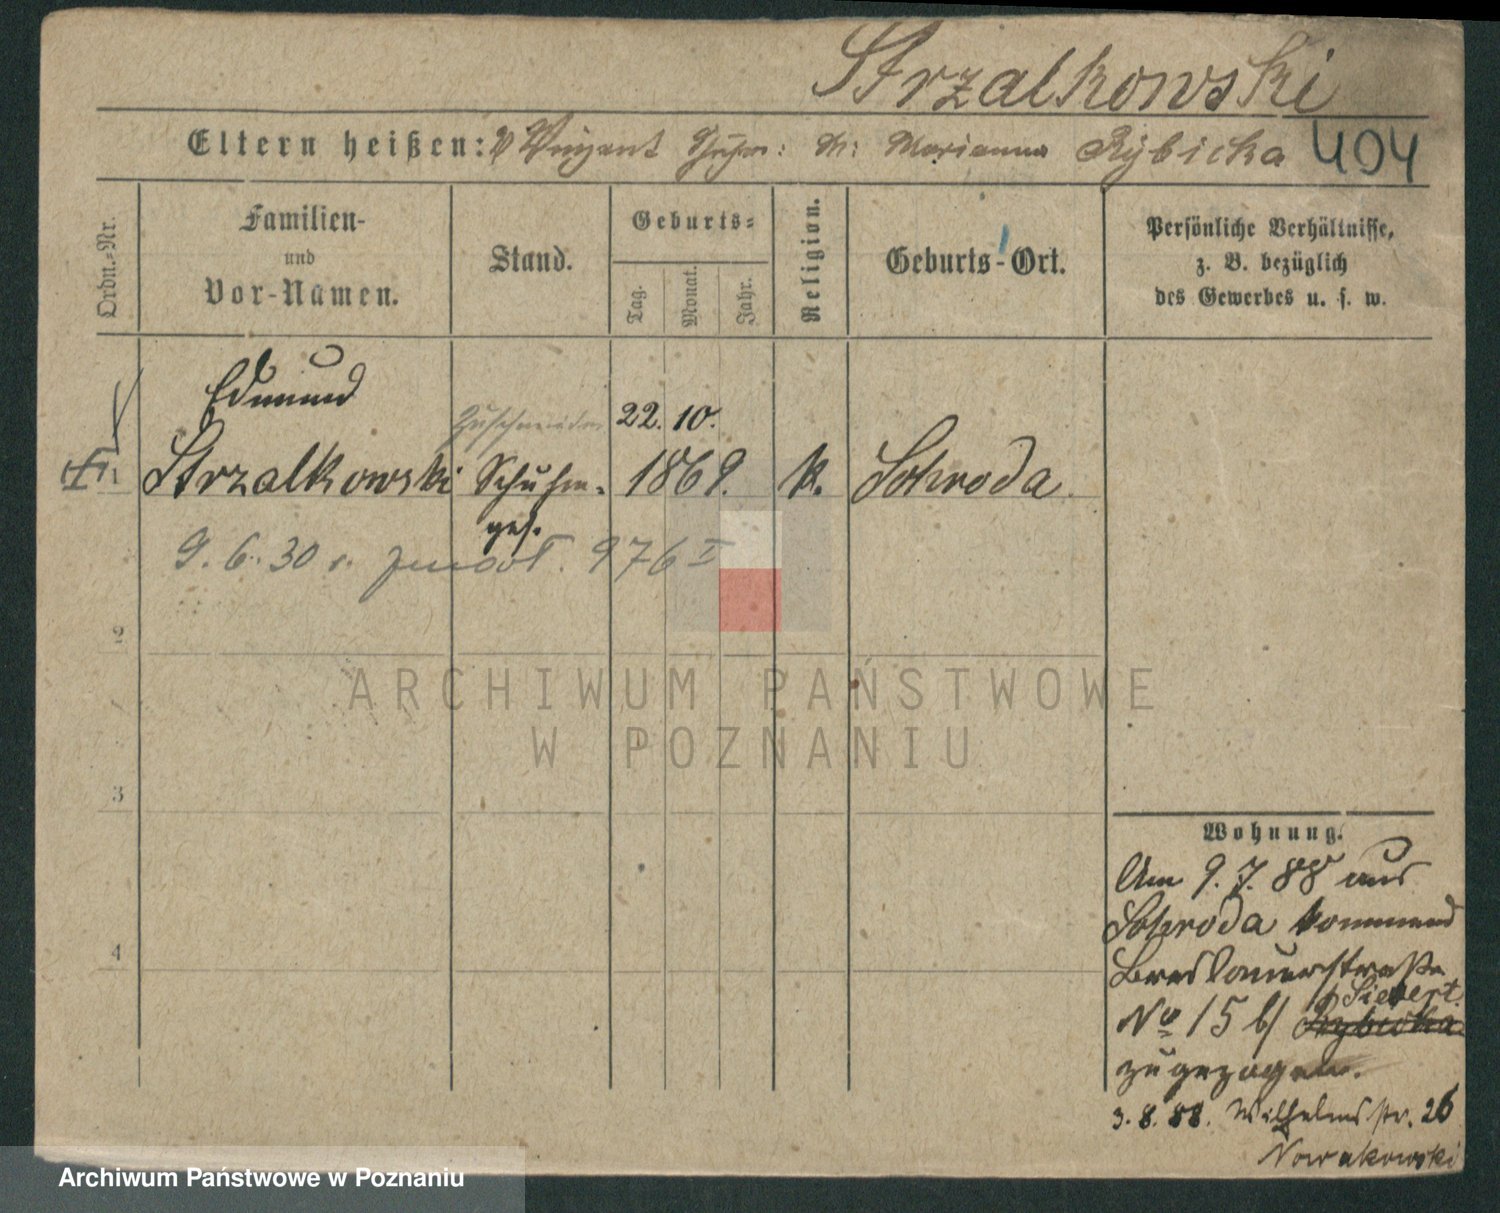 Strzalkowski
Eltern heißen: V. Vinzent Schuhm: M: Marianna Rybicka 404
Ordn.-Nr.
Familien-
und
Vor-Namen.
Stand.
Geburts-
Tag.
Monat.
Jahr.
Religion.
Geburts-Ort.
Persönliche Verhältnisse,
z. B. bezüglich
des Gewerbes u. s. w.
Edmund
Zuschneider 22. 10.
1 Strzalkowski Schuhm- 1869. k. Schroda
ges.
9. 6. 30 976 I
2
3
4
Wohnung.
Am 9. 7. 88 aus
Schroda kommend
Breslauerstraße
Siebert.
No 15 b/ Rybicka
zugezogen.
3. 8. 88. Wilhelmstr. 26
Nowakowski
ARCHIWUM PAŃSTWOWE
W POZNANIU
Archiwum Państwowe w Poznaniu